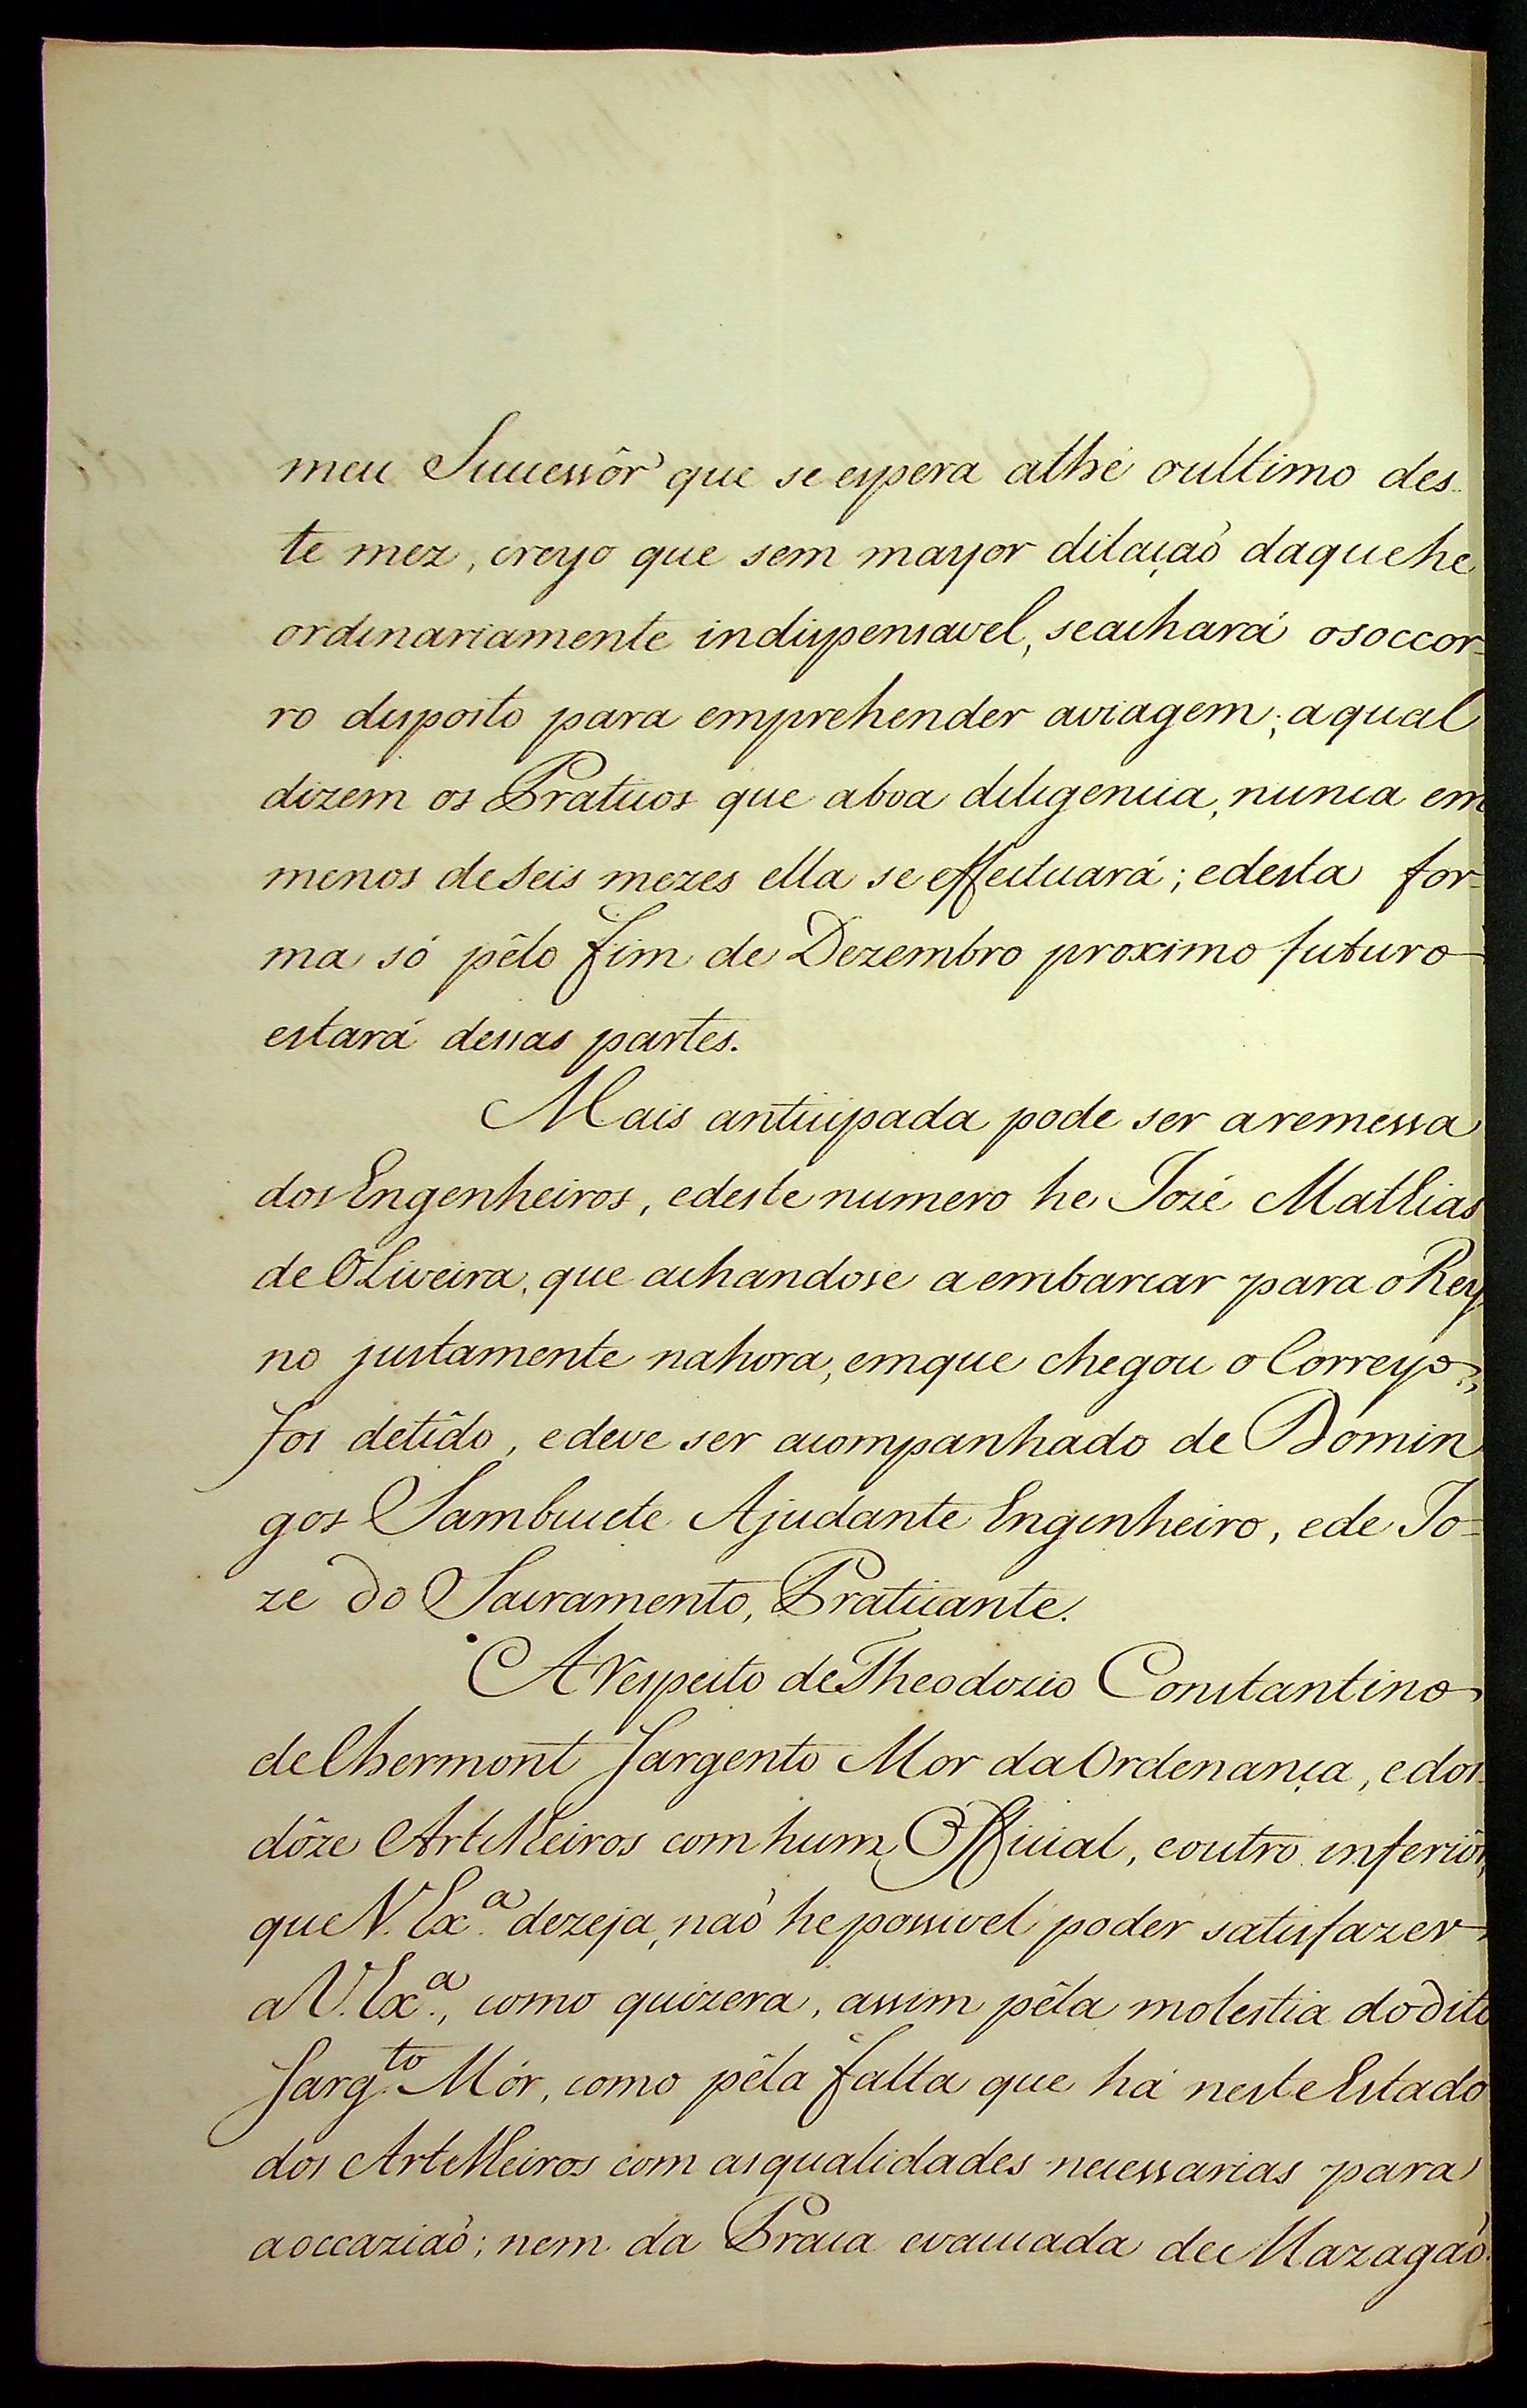 meu Successôr que se espera athé oultimo des-
te mez, creyo que sem mayor dilaçaõ daquehe
ordinariamente indispensavel, seachará osoccor-
ro disposto para emprehender aviagem; aqual
dizem os Praticos que aboa diligencia, nunca em
menos deseis mezes ella se effectuará; edesta for-
ma só pêlo fim de Dezembro proximo futuro
estará dessas partes.
Mais anticipada pode ser aremessa
dos Engenheiros, edeste numero he José Mathias
de Oliveira, que achandose aembarcar para oRey
no justamente nahora, emque chegou oCorreyo,
foi detîdo, edeve ser acompanhado de Domin
gos Sambucete Ajudante Engenheiro, ede Jo-
ze do Sacramento, Praticante.
A respeito deTheodozio Constantino
deChermont Sargento Mor daOrdenança, edos
dôze Artilleiros comhum Official, eoutro inferiôr,
que V. Ex.ª dezeja, naõ hepossivel poder satisfazer
aV. Ex.ª, como quizera, assim pêla molestia dodito
Sarg.to Môr, como pêla falta que há nesteEstado
dos Artilleiros com asqualidades necessarias para
aoccaziaõ; nem da Praca evacuada de Mazagaõ.